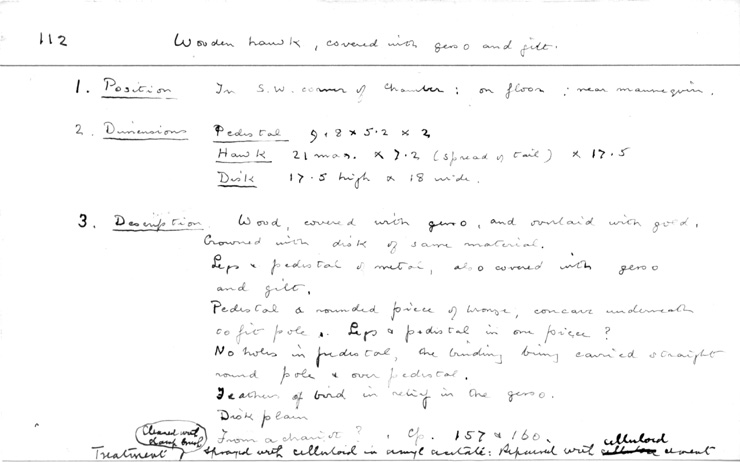 112 Wooden hawk, covered with gesso and gilt.
1. Position In S.W. corner of Chamber: on floor: near mannequin.
2. Dimensions Pedestal 9.8 x 5.2 x 2
Hawk 21 max. x 7.2 (spread of tail) x 17.5
Disk 17.5 high x 18 wide.
3. Description Wood, covered with gesso, and overlaid with gold.
Crowned with disk of same material.
Legs & pedestal of metal, also covered with gesso
and gilt.
Pedestal a rounded piece of bronze, concave underneath
to fit pole. Legs & pedestal in one piece?
No holes in pedestal, the binding being carried straight
round pole & over pedestal.
Feathers of bird in relief in the gesso.
Disk plain
From a chariot? Cp. 157 & 160.
Cleaned with damp brush
Treatment Sprayed with celluloid in amyl acetate: Repaired with celluloid cement